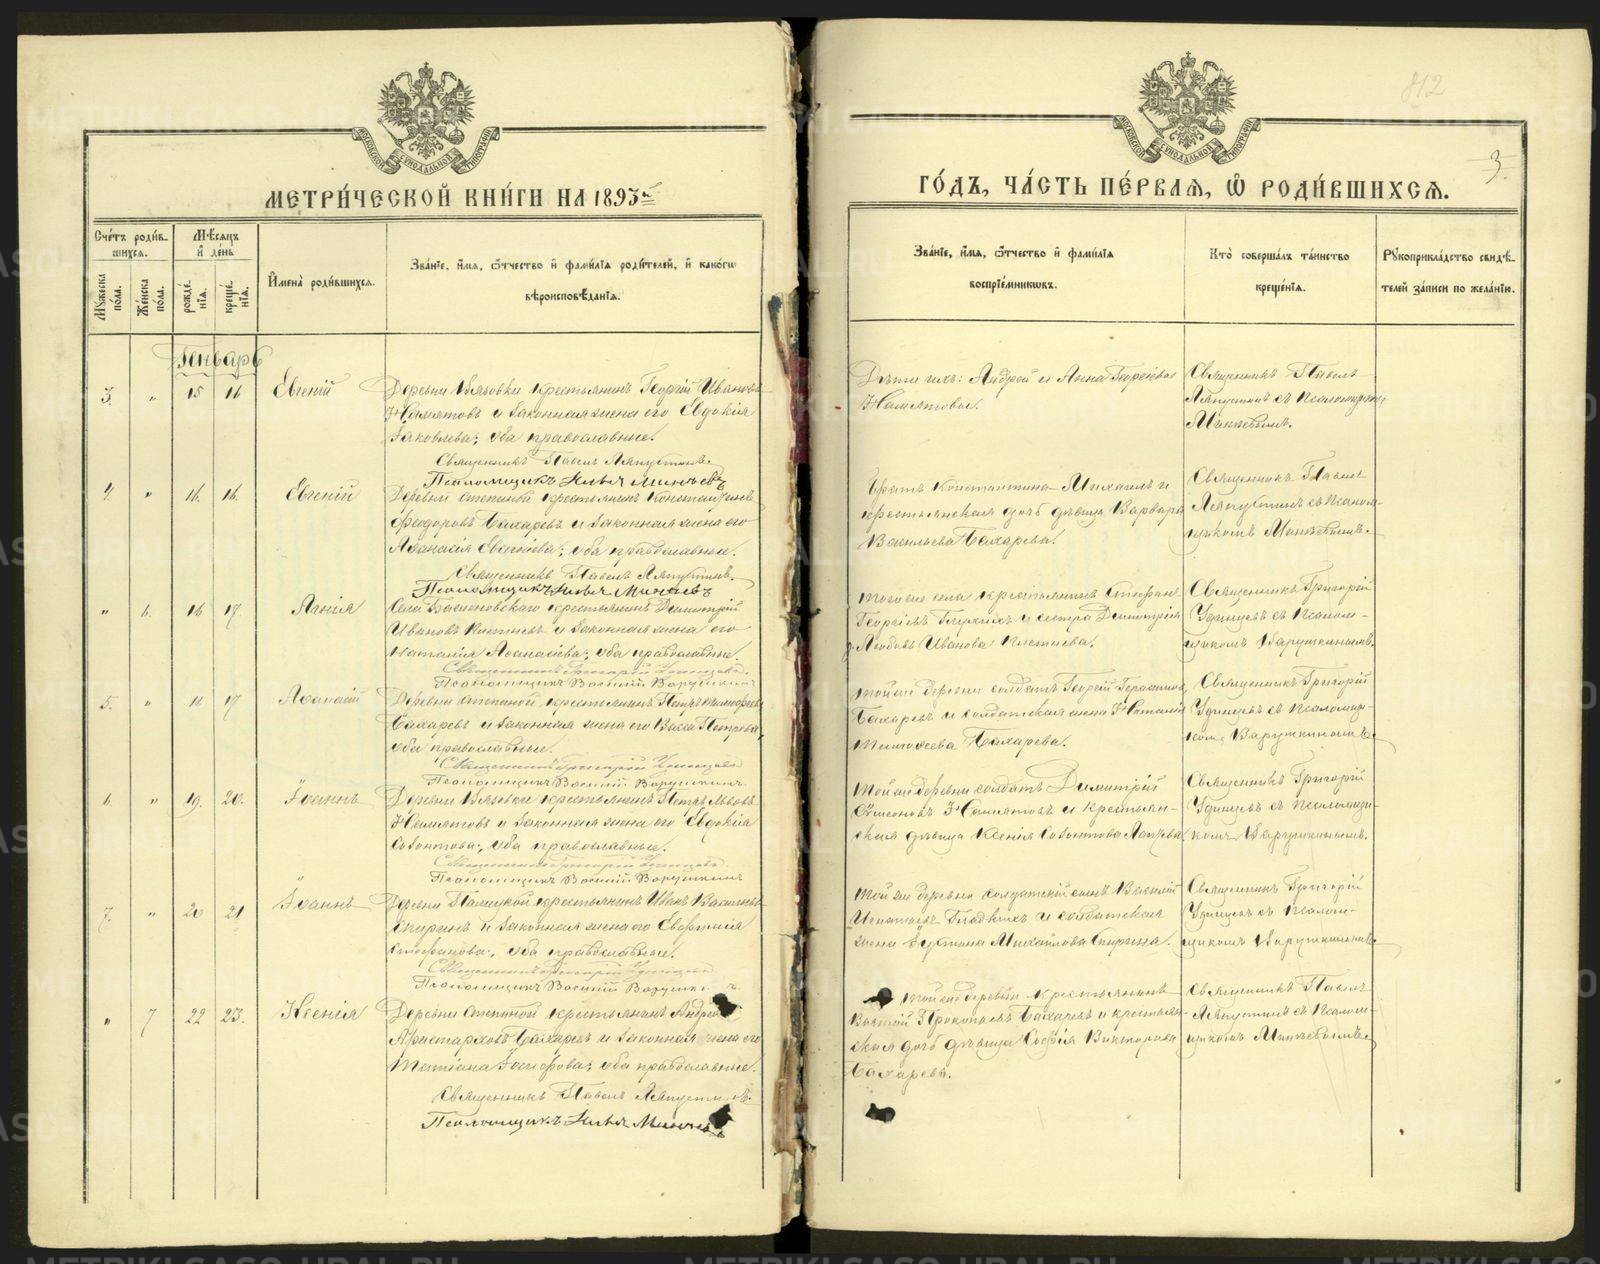 МЕТРИ́ЧЕСКОЙ КНИ́ГИ НА 1893й
Сче́тъ роди́в-
шихся.
Мѣ́сяцъ
и҆ де́нь
И҆мена̀ роди́вшихся.
Зва́нїе, и҆́мя, ѻ҆́тчество и҆ фами́лїя роди́телей, и҆ како́гѡ
вѣроисповѣ́данїя.
Му́жеска
по́ла.
Же́нска
по́ла.
рожде́-
нїя.
креще́-
нїя.
Генварь
3. " 15 16 Евгеній Деревни Вязовки крестьянинъ Георгій Ивановъ
Намятовъ и законная жена его Евдокія
Іаковлева; оба православные.
Священникъ Павелъ Ляпустинъ.
Псаломщикъ Илья Минѣевъ
4. " 16. 16. Евгеній Деревни Степиной крестьянинъ Константинъ
Феодоровъ Бахаревъ и законная жена его
Аѳанасія Евгеніева; оба православные.
Священникъ Павелъ Ляпустинъ.
Псаломщикъ Илья Минѣевъ
" 6. 16 17 Агнія Села Баженовскаго крестьянинъ Димитрій
Ивановъ Костневъ и законная жена его
Наталія Аѳанасіева; оба православные.
Священникъ Григорій Удинцевъ.
Псаломщикъ Василій Варушкинъ
5. " 11 17 Аѳанасій Деревни Степиной крестьянинъ Петръ Тимофеевъ
Бахаревъ и законная жена его Васса Петрова;
оба православные.
Священникъ Григорій Удинцевъ
Псаломщикъ Василій Варушкинъ
6. " 19. 20. Іоаннъ Деревни Вязовки крестьянинъ Петръ Львовъ
Намятовъ и законная жена его Евдокія
Созонтова; оба православные.
Священникъ Григорій Удинцевъ
Псаломщикъ Василій Варушкинъ
7. " 20 21 Іоаннъ Деревни крестьянинъ Иванъ Васильевъ
Спиринъ и законная жена его Евфимія
Стефанова; оба православные.
Священникъ Григорій Удинцевъ
Псаломщикъ Василій Варушкинъ
" 7 22 23. Ксенія Деревни Степиной крестьянинъ Андрей
Аристарховъ Бахаревъ и законная жена его
Татіана Іосифова; оба православные.
Священникъ Павелъ Ляпустинъ.
Псаломщикъ Илья Минѣевъ
812
3.
ГО́ДЪ, ЧА́СТЬ ПЕ́РВАЯ, Ѡ҆ РОДИ́ВШИХСЯ.
Зва́нїе, и҆́мя, ѻ҆́тчество и҆ фами́лїя
воспрїе́мникѡвъ.
Кто̀ соверша́лъ та́инство
креще́нїя.
Рꙋкоприкла́дство свидѣ́-
телей за́писи по жела́нїю.
Дѣти ихъ: Андрей и Анна Георгіевы
Намятовы.
Священникъ Павелъ
Ляпустинъ съ псаломщикомъ
Минѣевымъ.
Братъ Константина Михаилъ и
крестьянская дочь дѣвица Варвара
Васильева Бахарева.
Священникъ Павелъ
Ляпустинъ съ псалом-
щикомъ Минѣевымъ.
Того же села крестьянинъ Стефанъ
Георгіевъ Глухихъ и сестра Димитрія
Любовь Иванова Костнева.
Священникъ Григорій
Удинцевъ съ псалом-
щикомъ Варушкинымъ.
Той же деревни солдатъ Георгій Герасимовъ
Бахаревъ и солдатская жена Наталія
Тимофеева Бахарева.
Священникъ Григорій
Удинцевъ съ псаломщи-
комъ Варушкинымъ.
Той же деревни солдатъ Димитрій
Симеоновъ Намятовъ и крестьян-
ская дѣвица Ксенія Созонтова
Священникъ Григорій
Удинцевъ съ псаломщи-
комъ Варушкинымъ.
Той же деревни солдатскій сынъ Василій
Игнатьевъ Гладкихъ и солдатская
жена Іустина Михайлова Спирина.
Священникъ Григорій
Удинцевъ съ псалом-
щикомъ Варушкинымъ.
Той же деревни крестьянинъ
Василій Прокопьевъ Бахаревъ и крестьян-
ская дочь дѣвица Софія Викторова
Бахарева.
Священникъ Павелъ
Ляпустинъ съ псалом-
щикомъ Минѣевымъ.
METRIKI.GASO-URAL.RU